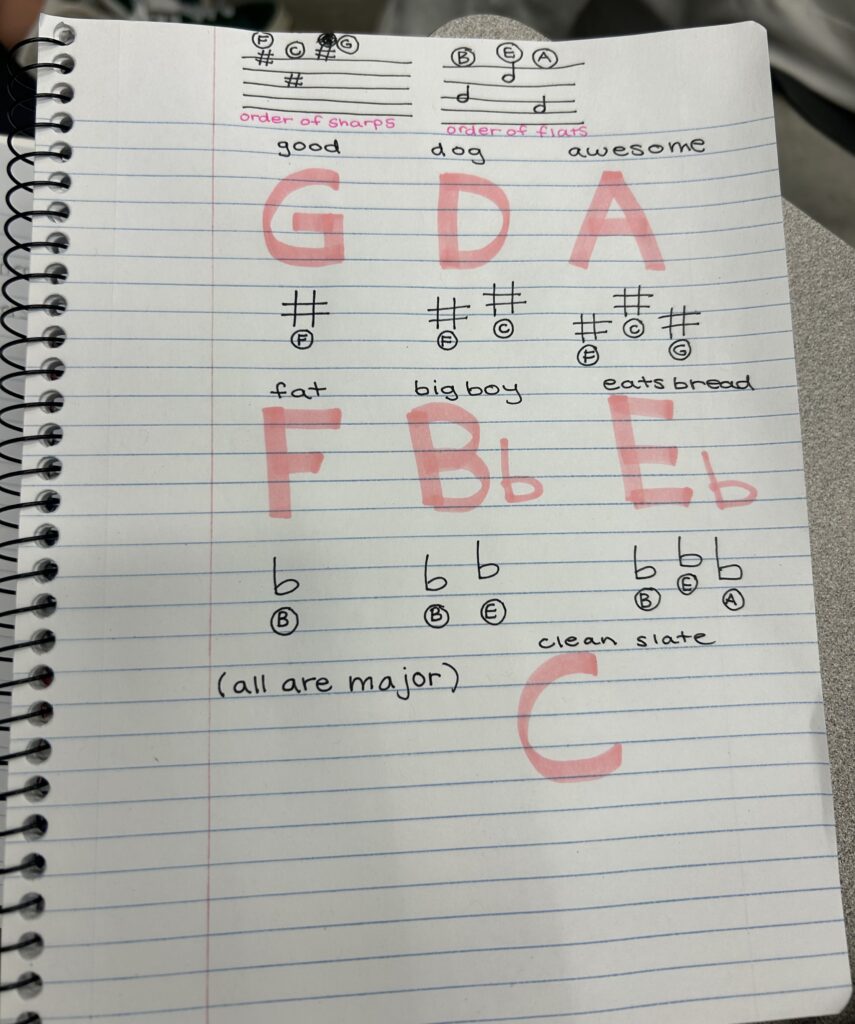 F C G B E A
# # # b b b
order of sharps order of flats
good dog awesome
G D A
# # # # # #
F F C F C G
fat big boy eats bread
F Bb Eb
b b b b b b
B B E B E A
clean slate
(all are major)
C